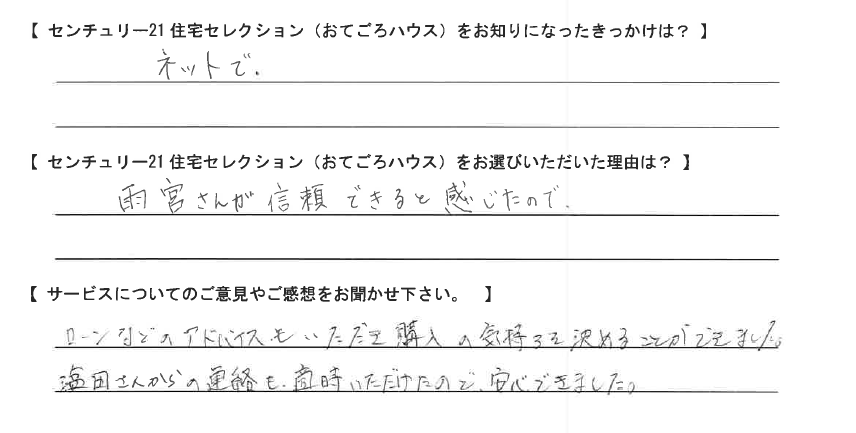 【 センチュリー21 住宅セレクション（おてごろハウス）をお知りになったきっかけは？ 】
ネットで.
【 センチュリー21 住宅セレクション（おてごろハウス）をお選びいただいた理由は？ 】
雨宮さんが信頼できると感じたので.
【 サービスについてのご意見やご感想をお聞かせ下さい。 】
ローンなどのアドバイスもいただき購入の気持ちを決めることができました。
塩田さんからの連絡も、適時いただけたので、安心できました。